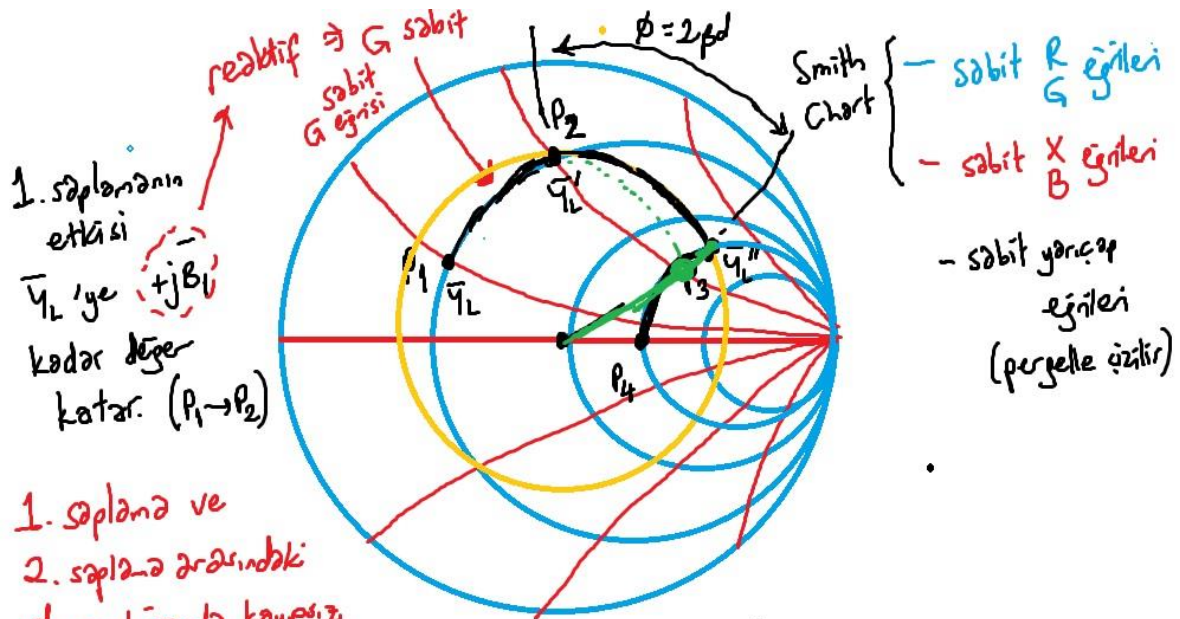 reaktif ⇒ G sabit
sabit
G eğrisi
ϕ = 2βd
Smith
Chart
- sabit R eğrileri
G
- sabit X eğrileri
B
- sabit yarıçap
eğrileri
(pergelle çizilir)
1. saplamanın
etkisi
ȳL'ye +jB̄1
kadar değer
katar. (P1→P2)
P2
ȳL'
P1
ȳL
ȳL''
P3
P4
1. saplama ve
2. saplama arasındaki